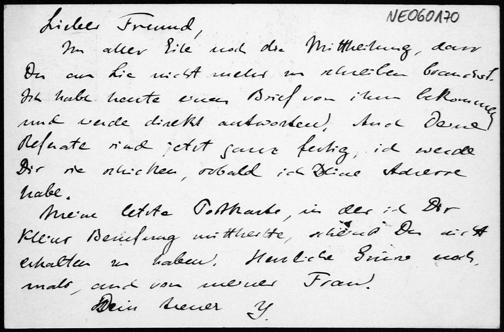 NE060170
Lieber Freund,
In aller Eile noch die Mittheilung, dass
Du an Lie nicht mehr zu schreiben brauchst.
Ich habe heute einen Brief von ihm bekommen
und werde direkt antworten. Auch Deine
Referate sind jetzt ganz fertig, ich werde
Dir sie schicken, sobald ich Deine Adresse
habe.
Meine letzte Postkarte, in der ich Dir
Kleins Berufung mittheilte, scheinst Du nicht
erhalten zu haben. Herzliche Grüsse noch
mals, auch von meiner Frau.
Dein treuer